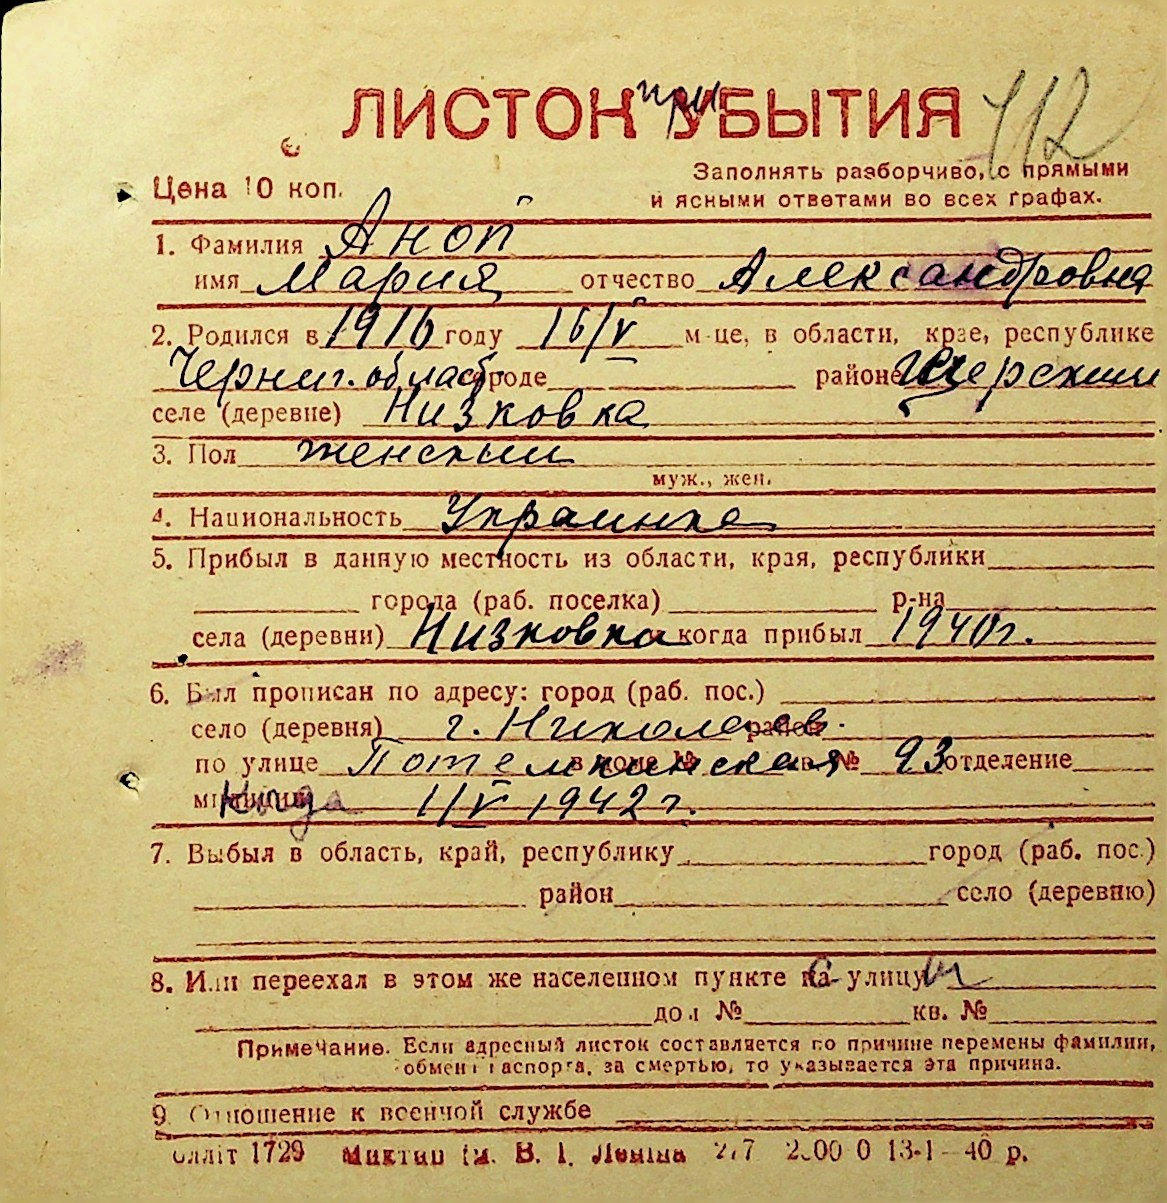 ЛИСТОК при УБЫТИЯ 112
Цена 10 коп.
Заполнять разборчиво, с прямыми
и ясными ответами во всех графах.
1. Фамилия Аноп
имя Мария отчество Александровна
2. Родился в 1916 году 16/V м-це, в области, крае, республике
Черниг. област. городе районе Щерский
селе (деревне) Низковка
3. Пол женский
муж., жен.
4. Национальность Украинка
5. Прибыл в данную местность из области, края, республики
города (раб. поселка) р-на
села (деревни) Низковка когда прибыл 1940 г.
6. Был прописан по адресу: город (раб. пос.)
село (деревня) г. Николаев. район
по улице Потемкинская в доме № кв. № 93 отделение
милиции Когда 1/V 1942 г.
7. Выбыл в область, край, республику город (раб. пос.)
район село (деревню)
8. Или переехал в этом же населенном пункте на улицу
дом № кв. №
Примечание. Если адресный листок составляется по причине перемены фамилии,
обмена паспорта, за смертью, то указывается эта причина.
9. Отношение к военной службе
1729 В. І. Леніна 13-1-40 р.